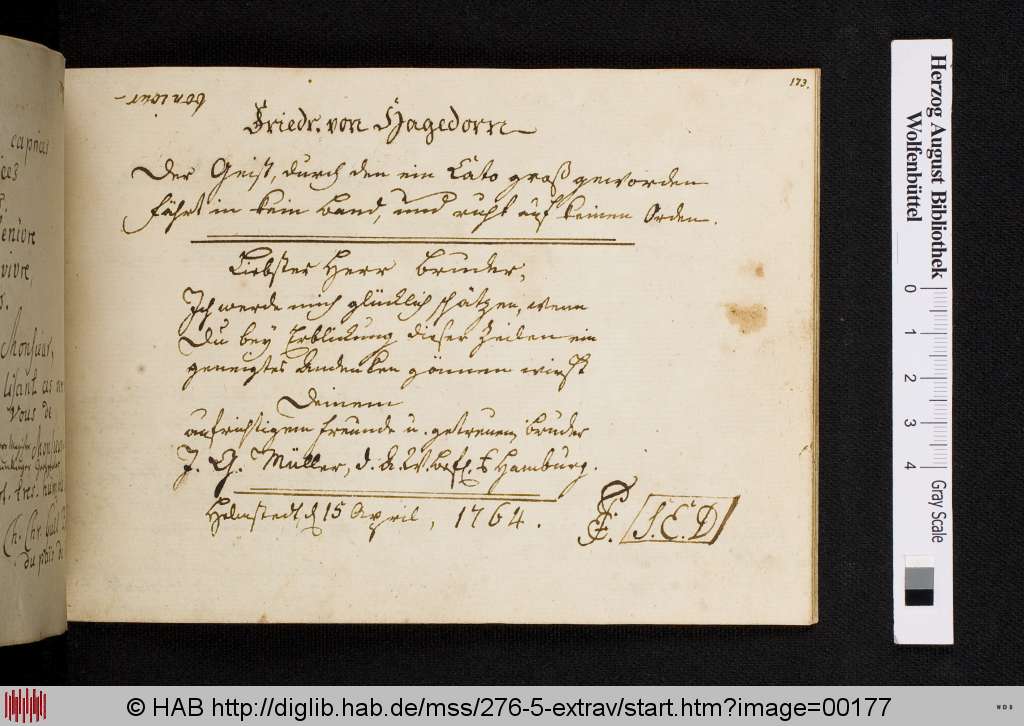 173.
Friedr. von Hagedorn
Der Geist, durch den ein Cato groß geworden
Fährt in kein Band, und ruht auf keinen Orden.
Liebster Herr Bruder,
Ich werde mich glücklich schätzen, wenn
Du bey Erblickung dieser Zeilen ein
geneigtes Andenken gönnen wirst
Deinem
aufrichtigem Freunde u. getreuem Bruder
J. Müller, d. Hamburg.
Helmstedt, d 15 April, 1764.
S.E.D
capnas
enivre
vivre,
Monsieur,
Vous de
tres
du
Herzog August Bibliothek
Wolfenbüttel
0
1
2
3
4
Gray Scale
© HAB http://diglib.hab.de/mss/276-5-extrav/start.htm?image=00177